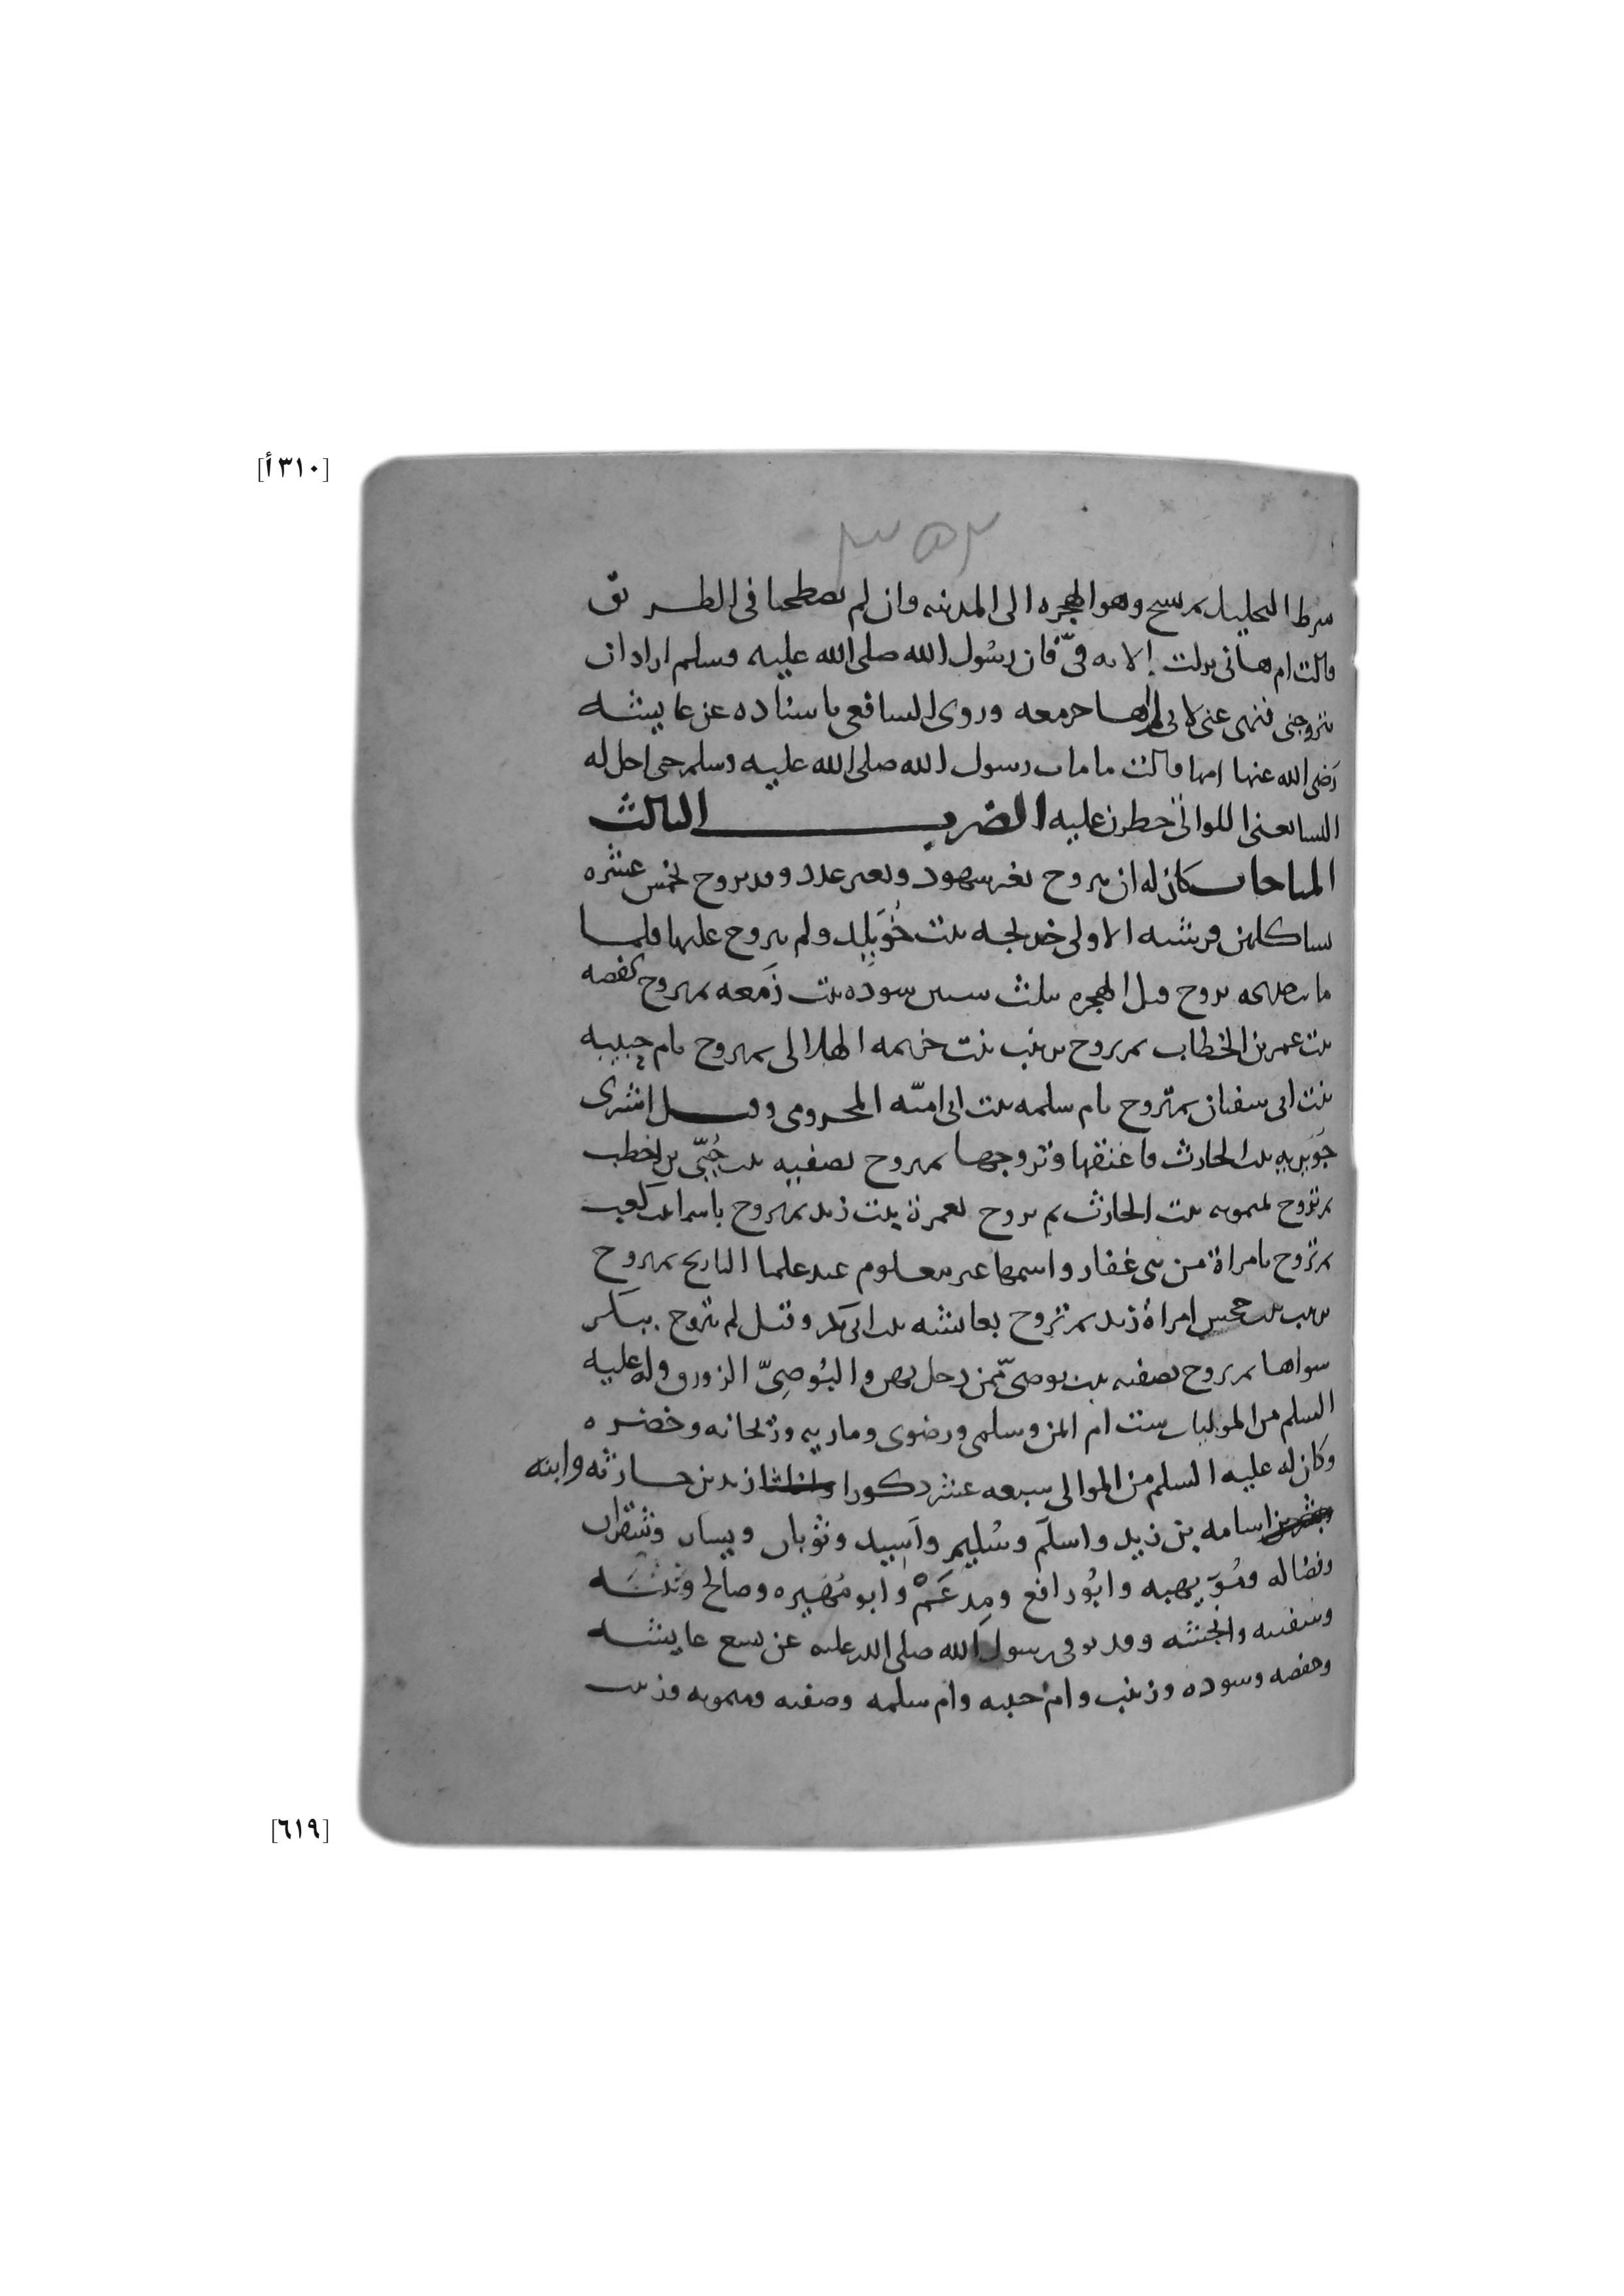 [٣١٠أ]
٣٥٣
شرط التحليل ثم نسخ وهو الهجرة الى المدينه وان لم يصطحبا في الطريق
قالت ام هانى نزلت الايه فيّ فان رسول الله صلى الله عليه وسلم اراد ان
يتزوجني فنهى عني لاني لم اهاجر معه وروى الشافعي باسناده عن عايشه
رضى الله عنها انها قالت ما مات رسول الله صلى الله عليه وسلم حتى احل له
النسا يعنى اللواتي حظرن عليه الضرب الثالث
المباحات كان له ان يتزوج بغير شهود وبغير عدد وقد تزوج بخمس عشره
نسا كلهن قرشيه الاولى خديجه بنت خُوَيلِد ولم يتزوج عليها فلما
ماتت خديجه تزوج قبل الهجره بثلث سنين سوده بنت زَمعه ثم تزوج بحفصه
بنت عمر بن الخطاب ثم تزوج بزينب بنت خزيمه الهلالى ثم تزوج بام حبيبه
بنت ابى سفيان ثم تزوج بام سلمه بنت ابى اميّه المخزومى وقيل اشترى
جُوَيريه بنت الحارث فاعتقها وتزوجها ثم تزوج بصفيه بنت حُيَيّ بن اخطب
ثم تزوج بميمونه بنت الحارث ثم تزوج بعمرة بنت زيد ثم تزوج باسما بنت كعب
ثم تزوج بامراة من بنى غفار واسمها غير معلوم عند علما التاريخ ثم تزوج
بزينب بنت جحش امراة زيد ثم تزوج بعائشه بنت ابى بكر وقيل لم يتزوج ببكر
سواها ثم تزوج بصفيه بنت بوصىّ ممن دخل بهن والبُوصِىّ الزورق وله عليه
السلم من الموليات ست ام ايمن وسلمى ورضوى وماريه وريحانه وخضره
وكان له عليه السلم من الموالى سبعه عشر ذكورا زيد بن حارثه وابنه
اسامه بن زيد واسلَم وسُليم واَسِيد وثوبان ويسار وشقران
وفضاله ومُوَيهبه وابُو رافع ومِدعَمْ وابو ضُمَيره وصالح
وسفينه وانجشه وقد توفى رسول الله صلى الله عليه عن تسع عايشه
وحفصه وسوده وزينب وام حبيبه وام سلمه وصفيه وميمونه وزينب
[٦١٩]